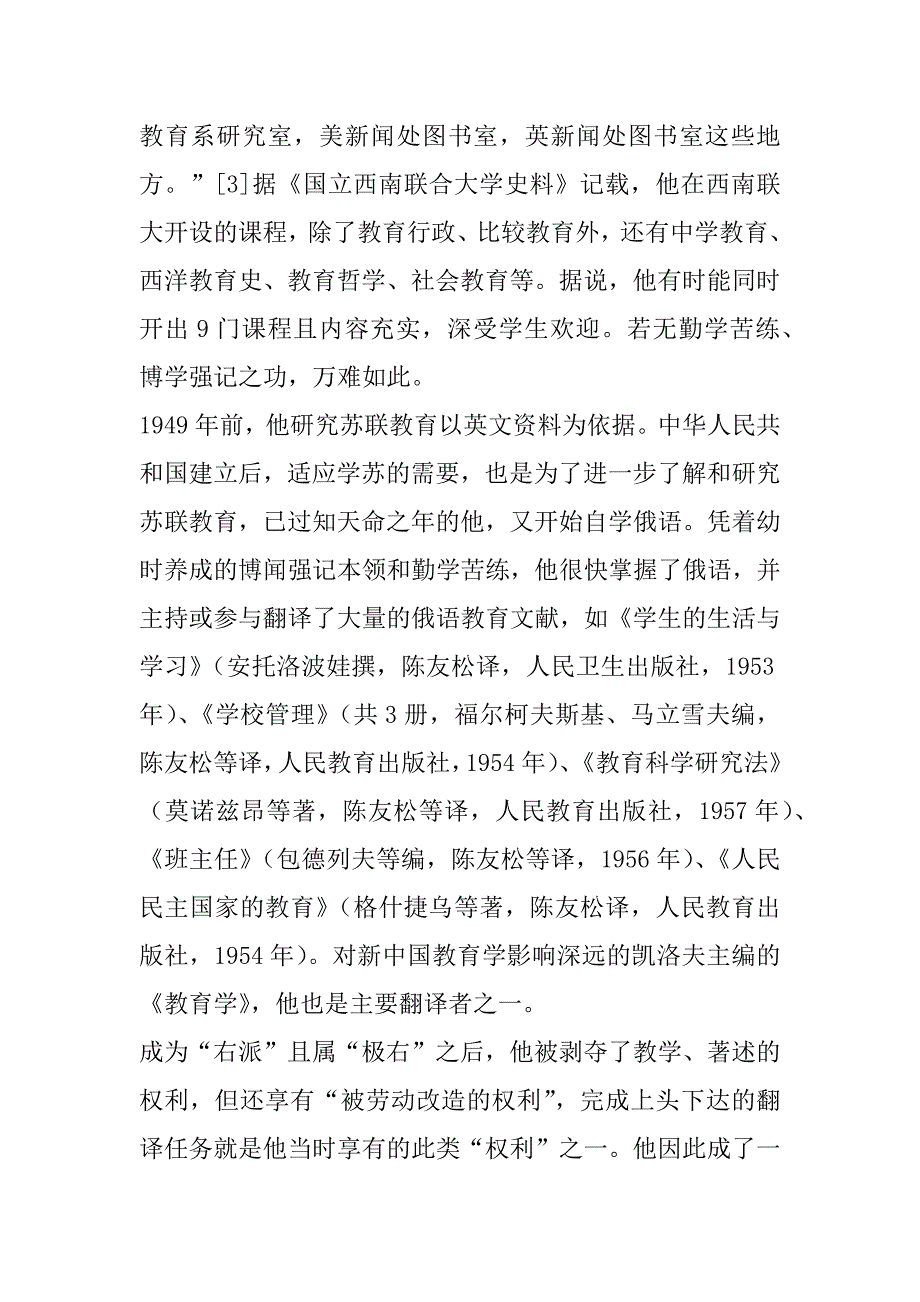 教育系研究室，美新闻处图书室，英新闻处图书室这些地
方。”[3]据《国立西南联合大学史料》记载，他在西南联
大开设的课程，除了教育行政、比较教育外，还有中学教育、
西洋教育史、教育哲学、社会教育等。据说，他有时能同时
开出 9 门课程且内容充实，深受学生欢迎。若无勤学苦练、
博学强记之功，万难如此。
1949 年前，他研究苏联教育以英文资料为依据。中华人民共
和国建立后，适应学苏的需要，也是为了进一步了解和研究
苏联教育，已过知天命之年的他，又开始自学俄语。凭着幼
时养成的博闻强记本领和勤学苦练，他很快掌握了俄语，并
主持或参与翻译了大量的俄语教育文献，如《学生的生活与
学习》（安托洛波娃撰，陈友松译，人民卫生出版社，1953
年）、《学校管理》（共 3 册，福尔柯夫斯基、马立雪夫编，
陈友松等译，人民教育出版社，1954 年）、《教育科学研究法》
（莫诺兹昂等著，陈友松等译，人民教育出版社，1957 年）、
《班主任》（包德列夫等编，陈友松等译，1956 年）、《人民
民主国家的教育》（格什捷乌等著，陈友松译，人民教育出
版社，1954 年）。对新中国教育学影响深远的凯洛夫主编的
《教育学》，他也是主要翻译者之一。
成为“右派”且属“极右”之后，他被剥夺了教学、著述的
权利，但还享有“被劳动改造的权利”，完成上头下达的翻
译任务就是他当时享有的此类“权利”之一。他因此成了一